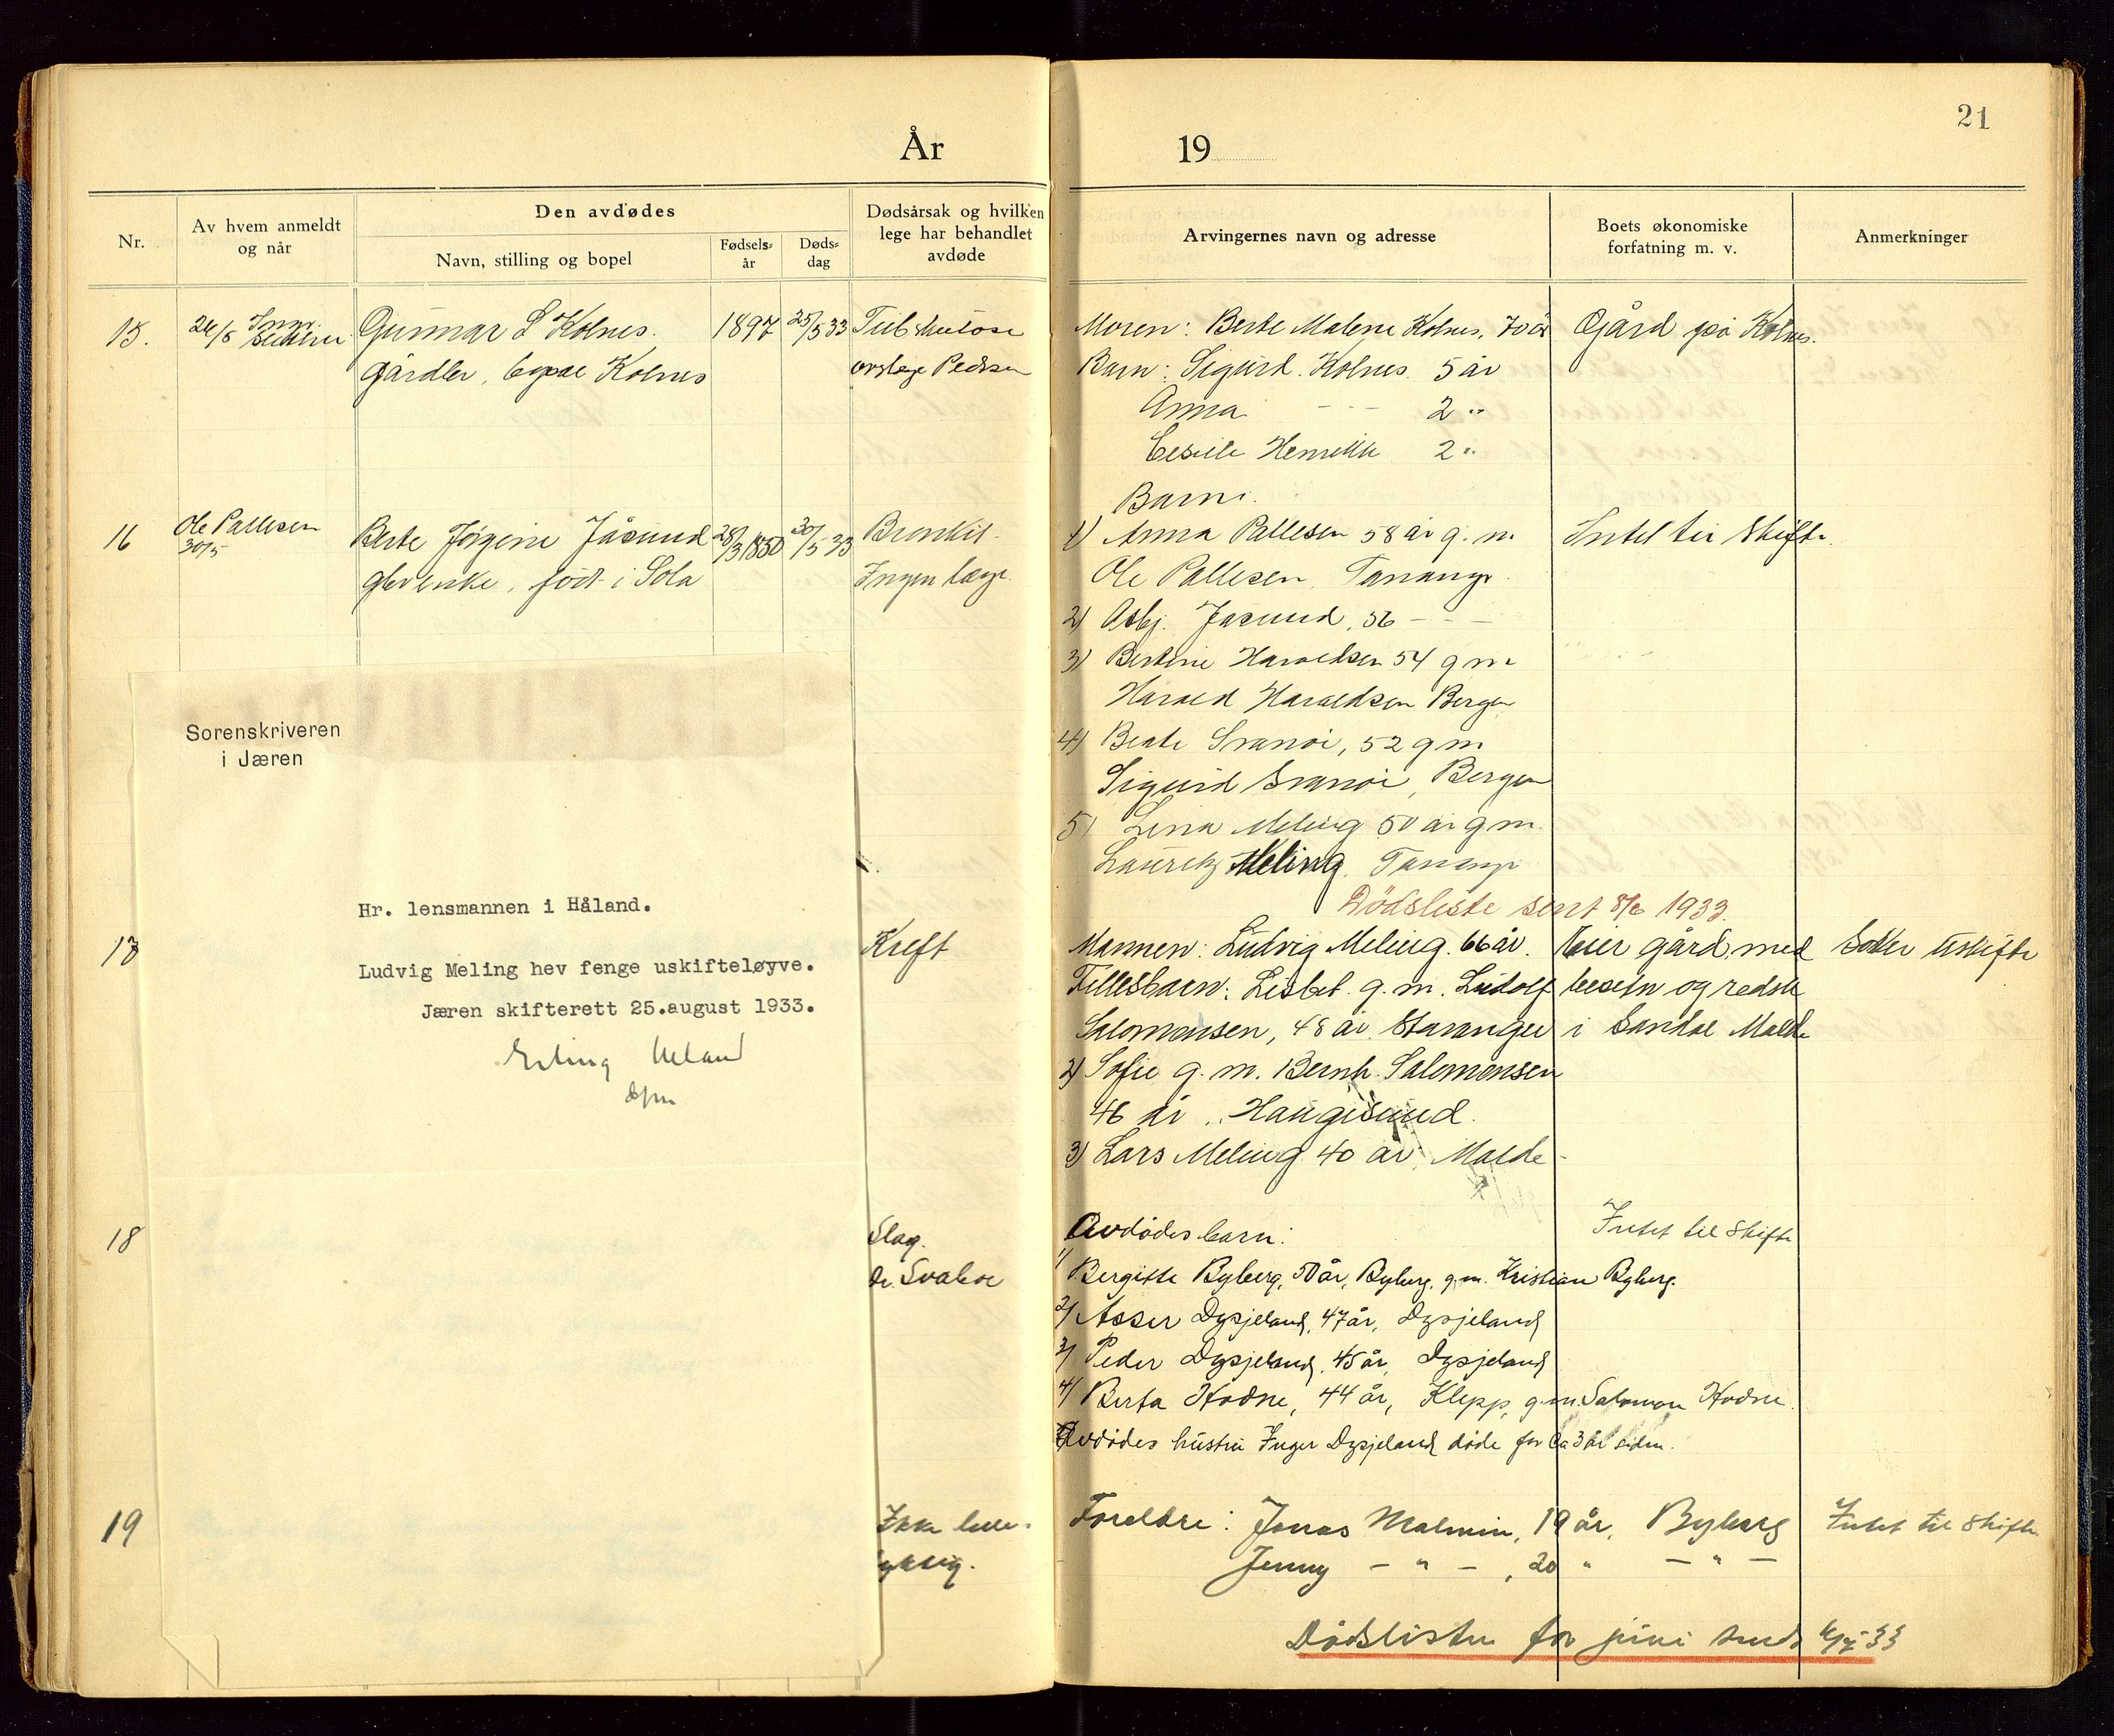 År
Nr.
Av hvem anmeldt
og når
Den avdødes
Navn, stilling og bopel
Fødsels-
år
Døds-
dag
Dødsårsak og hvilken
lege har behandlet
avdøde
15.
26/5
Gunnar L Kolnes.
gårdbr, bopæl Kolnes
1897
25/5 33
Tuberkulose
Pedersen
16
Ole Pallesen
30/5
Berte Jørgine Jåsund
født i Sola
28/3 1850
30/5 33
Bronkit.
Ingen læge.
Sorenskriveren
i Jæren
Hr. lensmannen i Håland.
Ludvig Meling hev fenge uskifteløyve.
Jæren skifterett 25.august 1933.
Erling
17
Kreft
18
Slag.
Dr. Svaboe
19
Ikke leve-
dyktig.
21
19
Arvingernes navn og adresse
Boets økonomiske
forfatning m. v.
Anmerkninger
Moren: Berte Malene Kolnes, 70 år
Gård på Kolnes.
Barn: Sigurd Kolnes. 5 år
Anna - - 2 "
Henrikke 2 "
Barn:
1) Anna Pallesen 58 år g. m.
Intet til Skifte.
Ole Pallesen, Tananger.
2) Asbj. Jåsund, 56 - - -
3) Bertine Haraldsen 54 g m
Harald Haraldsen Bergen
4) Beate Svanøi, 52 g m
Sigurd Svanøi, Bergen
5) Lina Meling 50 år g m.
Lauritz Meling. Tananger
Dödsliste sent 8/6 1933.
Mannen: Ludvig Meling. 66 år.
Eier gård med
Søker uskifte
Fellesbarn: Lisbet g. m. Ludolf
besetn og redsk
Salomonsen, 48 år Stavanger
i Sandal Malde
2) Sofie g. m. Bernh. Salomonsen
46 år, Haugesund.
3) Lars Meling 40 år Malde
Avdødes barn:
Intet til Skifte
1) Bergitte Byberg, 50 år, Byberg, g.m. Kristian Byberg.
2) Asser Dysjeland, 47 år, Dysjeland
3) Peder Dysjeland, 45 år, Dysjeland
4) Berta Hodne, 44 år, Klepp, g.m. Salomon Hodne.
Avdødes hustru Inger Dysjeland døde for ca 3 år siden.
Foreldre: Jonas Malmin, 19 år, Byberg
Intet til Skifte.
Jenny - " - , 20 " - " -
Dødslisten for juni sendt 4/7 33